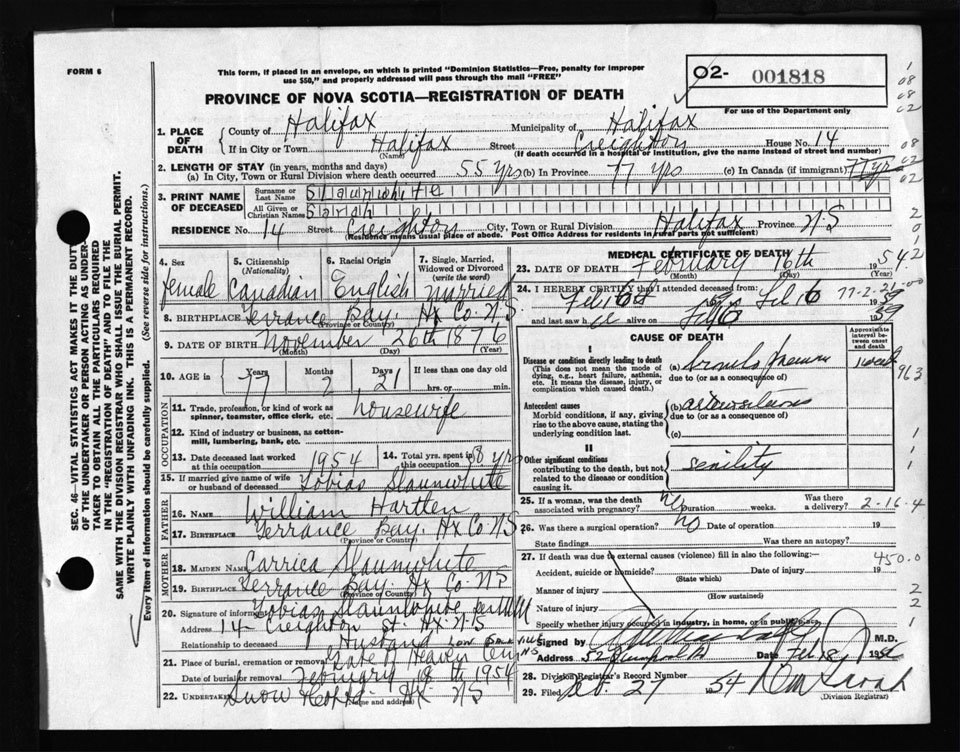 FORM 6
This form, if placed in an envelope, on which is printed "Dominion Statistics—Free, penalty for improper
use $50," and properly addressed will pass through the mail "FREE"
02- 001818
For use of the Department only
PROVINCE OF NOVA SCOTIA—REGISTRATION OF DEATH
1. PLACE OF DEATH { County of Halifax Municipality of Halifax
If in City or Town Halifax (Name) Street Creighton House No. 14
(If death occurred in a hospital or institution, give the name instead of street and number)
2. LENGTH OF STAY (in years, months and days)
(a) In City, Town or Rural Division where death occurred 55 yrs (b) In Province 77 yrs (c) In Canada (if immigrant) 77 yrs
3. PRINT NAME OF DECEASED { Surname or Last Name Slaunwhite
All Given or Christian Names Sarah
RESIDENCE No. 14 Street Creighton City, Town or Rural Division Halifax Province N.S
(Residence means usual place of abode. Post Office Address for residents in rural parts not sufficient)
4. Sex female
5. Citizenship (Nationality) Canadian
6. Racial Origin English
7. Single, Married, Widowed or Divorced (write the word) Married
8. BIRTHPLACE Terrance Bay. Hx Co. N.S
(Province or Country)
9. DATE OF BIRTH November 26th 1876
(Month) (Day) (Year)
10. AGE in { Years 77 Months 2 Days 21 If less than one day old
hrs. or min.
OCCUPATION
11. Trade, profession, or kind of work as spinner, teamster, office clerk, etc. housewife
12. Kind of industry or business, as cotton-mill, lumbering, bank, etc.
13. Date deceased last worked at this occupation 1954 14. Total yrs. spent in this occupation 8 yrs
15. If married give name of wife or husband of deceased Tobias Slaunwhite
FATHER
16. NAME William Hartlen
17. BIRTHPLACE Terrance Bay. Hx Co N.S
(Province or Country)
MOTHER
18. MAIDEN NAME Carrice Slaunwhite
19. BIRTHPLACE Terrance Bay. Hx Co. N.S
(Province or Country)
20. Signature of informant Tobias Slaunwhite
Address 14 Creighton St Hx N.S
Relationship to deceased Husband
21. Place of burial, cremation or removal Gate of Heaven Cem
Date of burial or removal February 18th 1954
22. UNDERTAKER Snow
(Name and address) Hx NS
MEDICAL CERTIFICATE OF DEATH
23. DATE OF DEATH February 16th 1954
(Month) (Day) (Year)
24. I HEREBY CERTIFY that I attended deceased from:
Feb 16
and last saw h alive on Feb 16
77-2-21-00
CAUSE OF DEATH
Approximate interval between onset and death
I
Disease or condition directly leading to death
(This does not mean the mode of dying, e.g., heart failure, asthenia, etc. It means the disease, injury, or complication which caused death.)
(a) 1 week
due to (or as a consequence of)
Antecedent causes
Morbid conditions, if any, giving rise to the above cause, stating the underlying condition last.
(b)
due to (or as a consequence of)
(c)
II
Other significant conditions
contributing to the death, but not related to the disease or condition causing it.
senility
25. If a woman, was the death associated with pregnancy? No Duration weeks. Was there a delivery?
2-16-4
26. Was there a surgical operation? no Date of operation 19
State findings Was there an autopsy?
27. If death was due to external causes (violence) fill in also the following:—
Accident, suicide or homicide? (State which) Date of injury 19
450.0
Manner of injury (How sustained)
Nature of injury
Specify whether injury occurred in industry, in home, or in public place
Signed by M.D.
Address 52 Date Feb 18 1954
28. Division Registrar's Record Number
29. Filed Feb. 27 1954
(Division Registrar)
SEC. 46—VITAL STATISTICS ACT MAKES IT THE DUTY
OF THE UNDERTAKER OR PERSON ACTING AS UNDER-
TAKER TO OBTAIN ALL THE PARTICULARS REQUIRED
IN THE "REGISTRATION OF DEATH" AND TO FILE THE
SAME WITH THE DIVISION REGISTRAR WHO SHALL ISSUE THE BURIAL PERMIT.
WRITE PLAINLY WITH UNFADING INK. THIS IS A PERMANENT RECORD.
Every item of information should be carefully supplied. (See reverse side for instructions.)